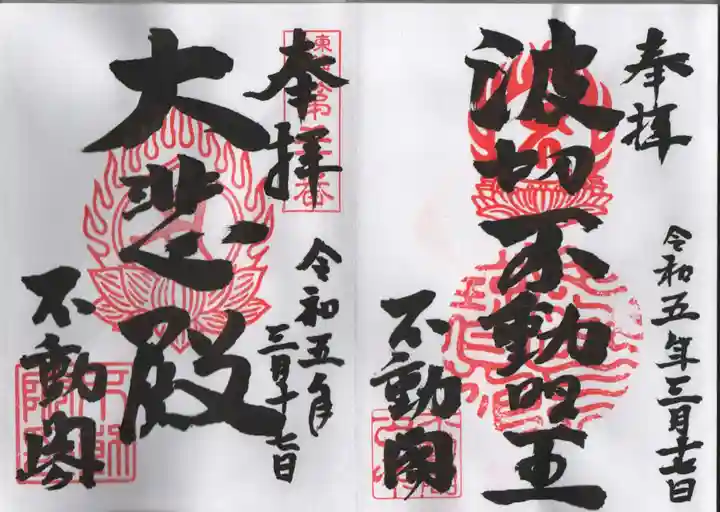 奉拝
令和五年三月十七日
波切不動明王
不動閣
奉拝
令和五年
三月十七日
大悲殿
不動閣